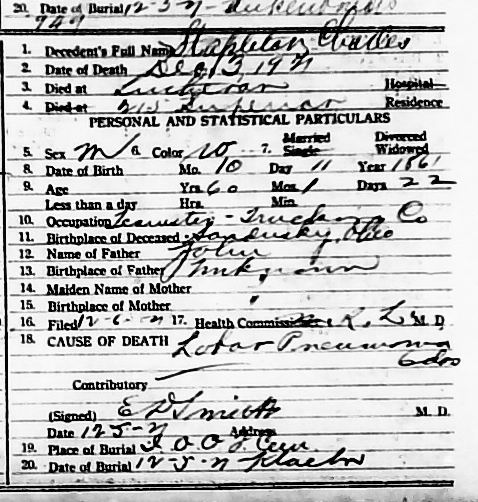 20. Date of Burial 12-3-21
1. Decedent's Full Name Stapleton, Charles
2. Date of Death Dec. 3, 1921
3. Died at Lutheran Hospital
4. Died at 215 Superior Residence
PERSONAL AND STATISTICAL PARTICULARS
Married Divorced
5. Sex M 6. Color W 7. Single Widowed
8. Date of Birth Mo. 10 Day 11 Year 1861
9. Age Yrs. 60 Mos. 1 Days 22
Less than a day Hrs. Min.
10. Occupation Teamster - Trucking Co
11. Birthplace of Deceased Sandusky, Ohio
12. Name of Father John
13. Birthplace of Father Unknown
14. Maiden Name of Mother "
15. Birthplace of Mother "
16. Filed 12-6-21 17. Health Commissioner M. D.
18. CAUSE OF DEATH Lobar Pneumonia
Contributory
(Signed) E D Smith M. D.
Date 12-5-21 Address
19. Place of Burial I. O. O. F. Cem
20. Date of Burial 12-5-21